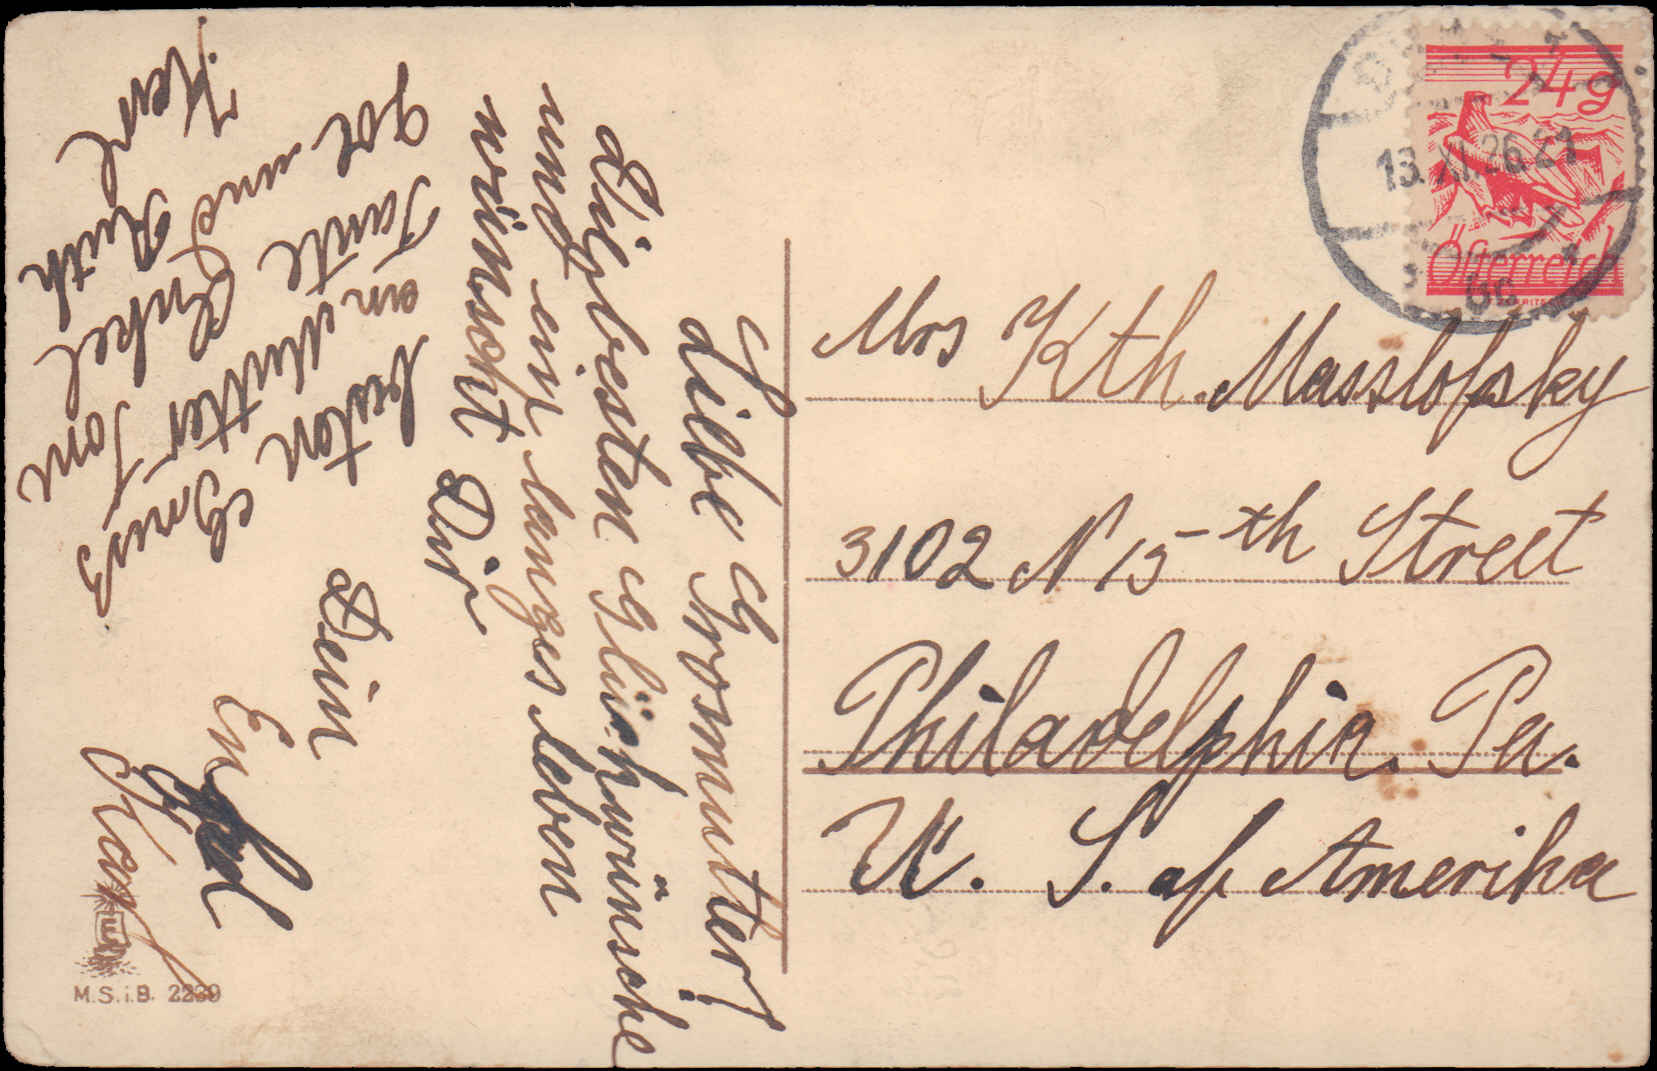 Liebe Grosmutter!
die besten Glückwünsche
und ein langes leben
wünscht Dir
Dein
Enkel
Karl
besten Gruß
an Mutter Toni
Tante
und Onkel
Ruth
Karl
Mrs Kth. Masslofsky
3102 N 15-th Street
Philadelphia. Pa.
U. S. of Amerika
24g
Österreich
13.XI.26.21
M.S.i.B. 2239